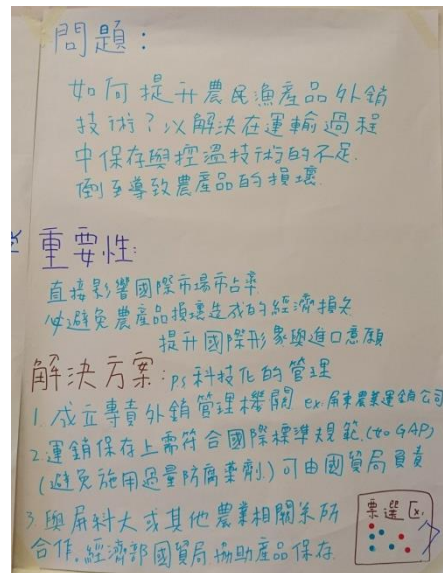 問題：
如何提升農民漁產品外銷
技術？以解決在運輸過程
中保存與控溫技術的不足.
倒至導致農產品的損壞.
重要性:
直接影響國際市場市占率
避免農產品損壞造成的經濟損失
提升國際形象與進口意願
解決方案: ps科技化的管理
1. 成立專責外銷管理機關 ex.屏東農業運銷公司
2. 運銷保存上需符合國際標準規範.(to GAP)
(避免施用過量防腐藥劑.)可由國貿局負責
3 與屏科大或其他農業相關系所
合作.經濟部國貿局協助產品保存
票選區.